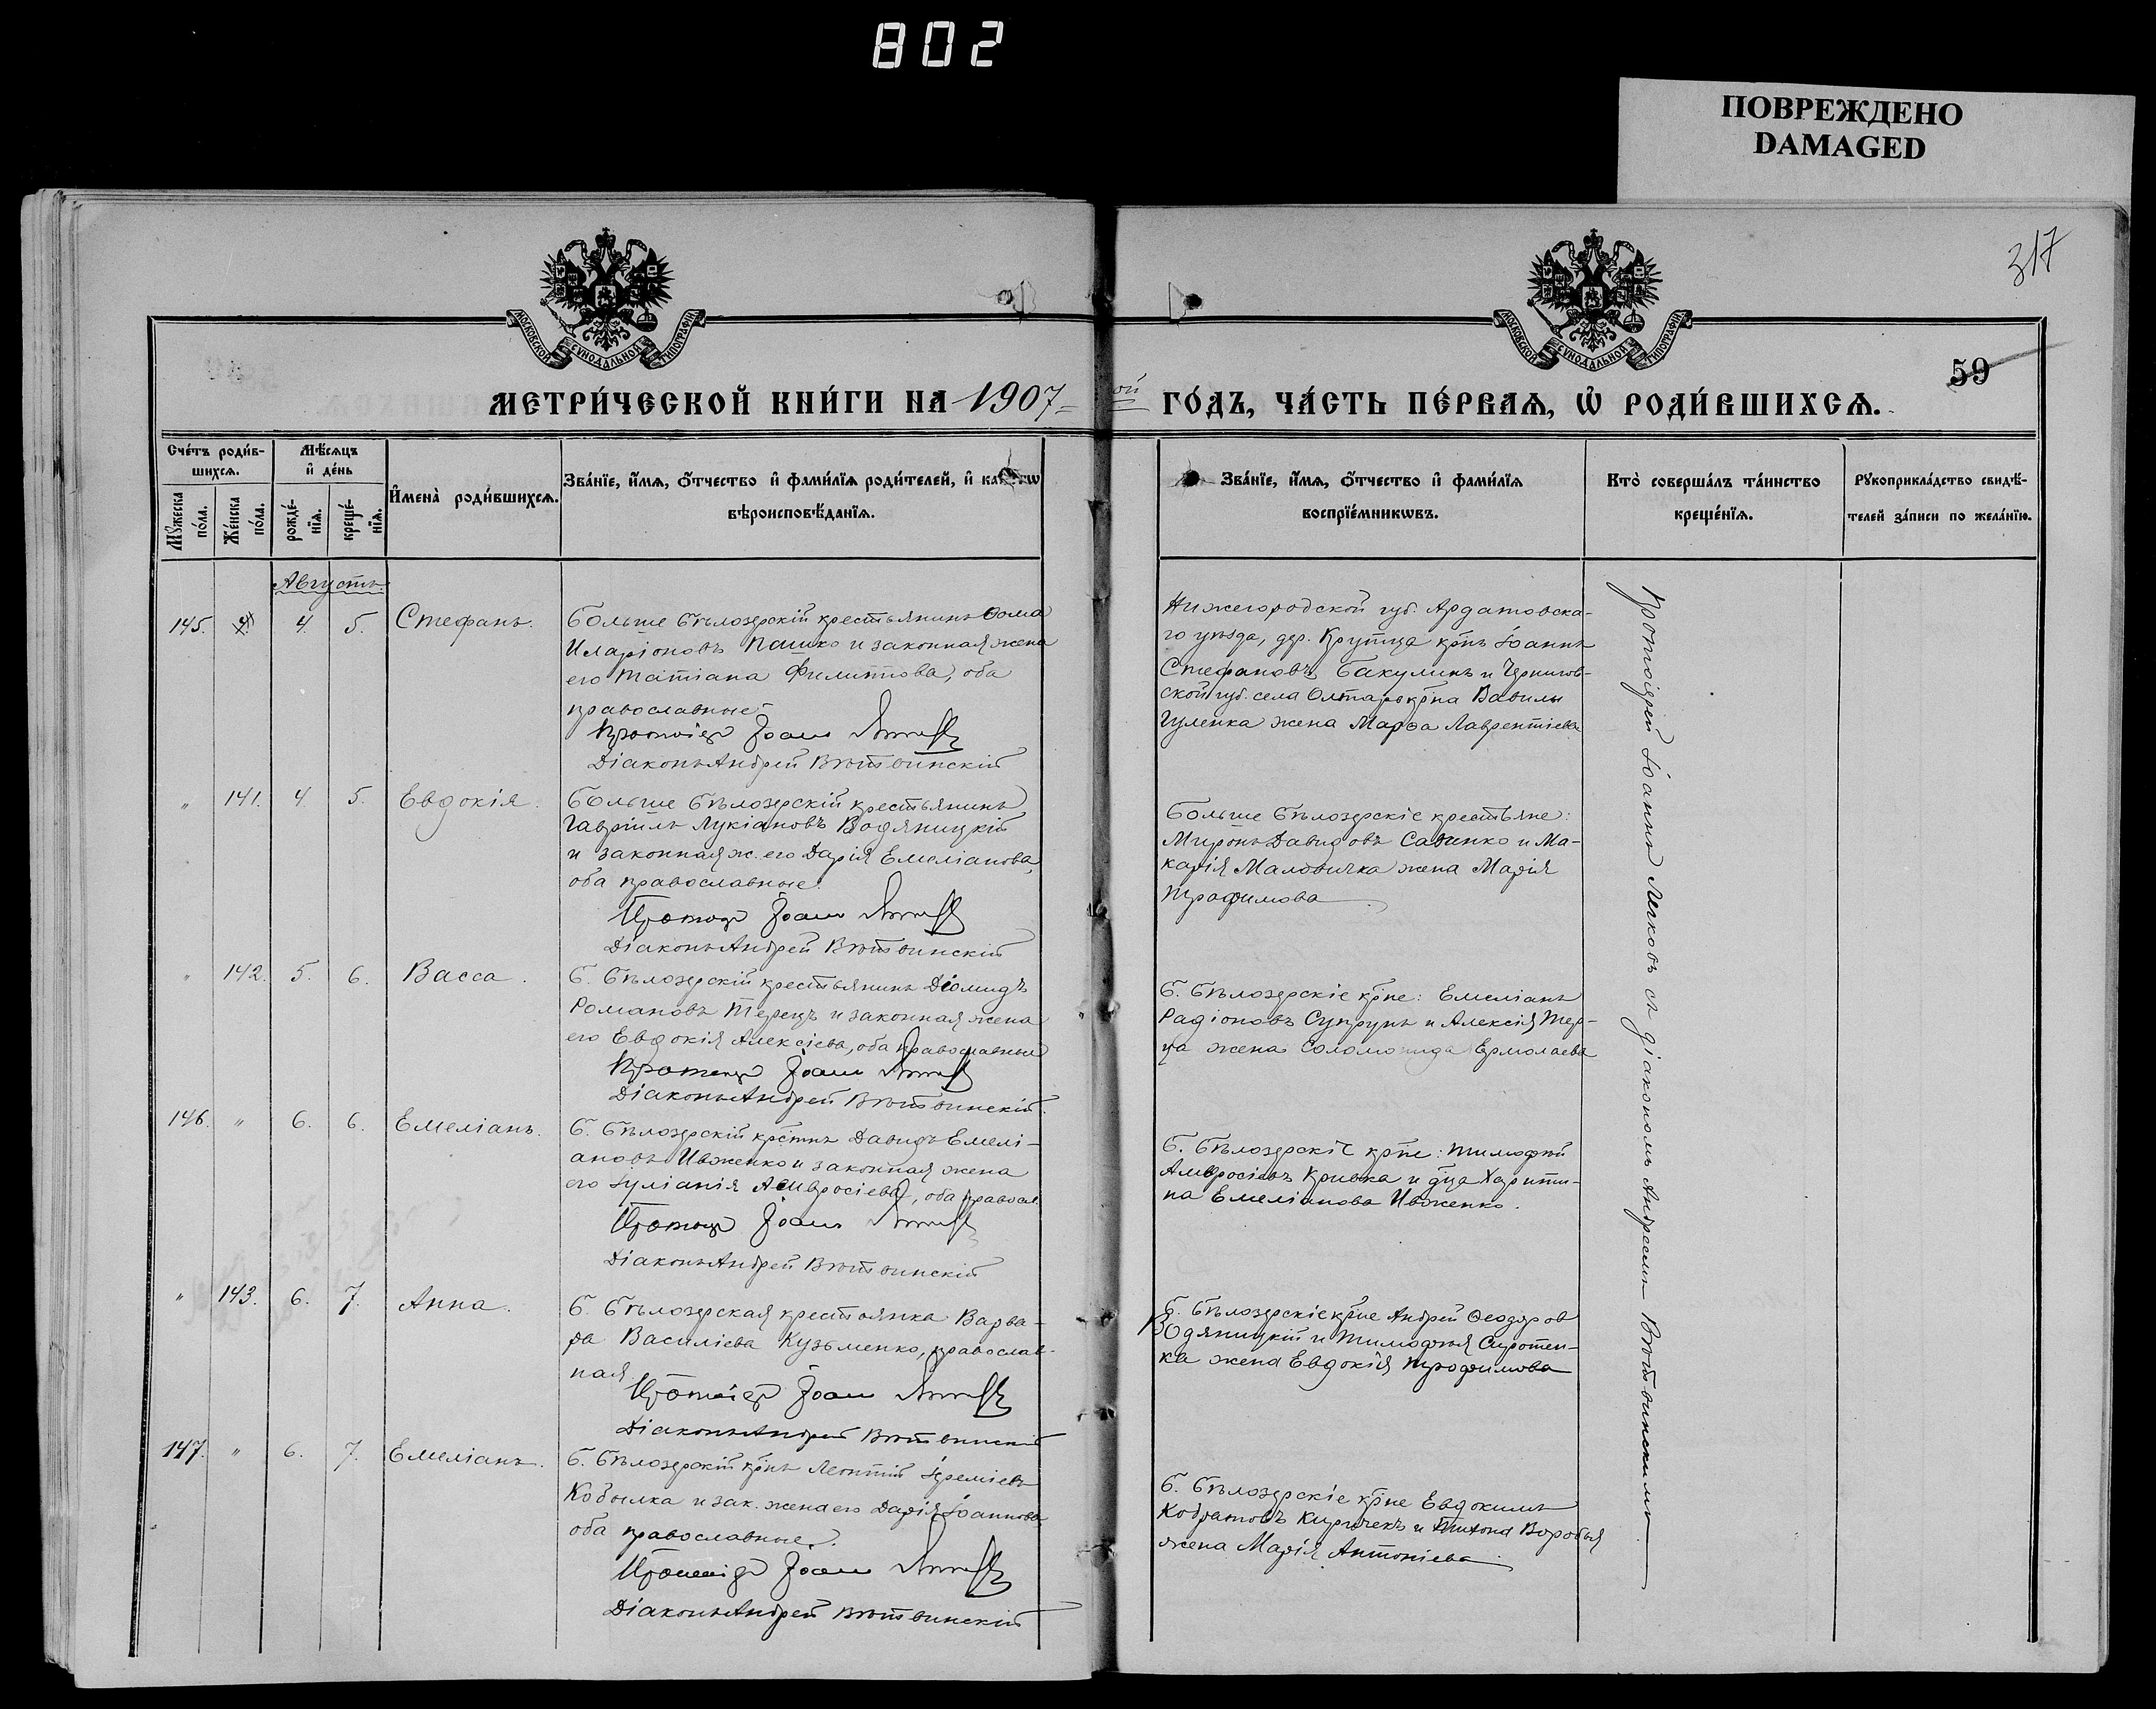 802
ПОВРЕЖДЕНО
DAMAGED
317
МОСКОВСКОЙ СѴНОДАЛЬНОЙ ТИПОГРАФІИ
МОСКОВСКОЙ СѴНОДАЛЬНОЙ ТИПОГРАФІИ
59
МЕТРИ́ЧЕСКОЙ КНИ́ГИ НА 1907
ой ГО́ДЪ, ЧА́СТЬ ПЕ́РВАѦ, Ѡ҆ РОДИ́ВШИХСѦ.
Сче́тъ роди́в-
шихсѧ.
Мꙋ́жеска по́ла.
Же́нска по́ла.
Мѣ́сѧцъ
и҆ де́нь
рожде́-
нїѧ.
креще́-
нїѧ.
И҆мена̀ роди́вшихсѧ.
Зва́нїе, и҆́мѧ, ѻ҆́тчество и҆ фами́лїѧ роди́телей, и҆
вѣроисповѣ́данїѧ.
Зва́нїе, и҆́мѧ, ѻ҆́тчество и҆ фами́лїѧ
воспрїе́мникѡвъ.
Кто̀ соверша́лъ та́инство
креще́нїѧ.
Рꙋкоприкла́дство свидѣ́-
телей за́писи по жела́нїю.
Августъ
145. 4. 5. Стефанъ.
Больше Бѣлозерскій крестьянинъ Ѳома
Иларіоновъ Пашко и законная жена
его Татіана Филиппова, оба
православные.
Протоіер Іоанн
Діаконъ Андрей
Нижегородской губ. Ардатовска-
го уѣзда, дер. Крутца кр̃нъ Іоаннъ
Стефановъ Бакулинъ и Чернигов-
ской губ. села Олтаро кр̃на Вавилы
Гуленка жена Марѳа Лаврентіева
" 141. 4. 5. Евдокія.
Больше Бѣлозерскій крестьянинъ
Гавріилъ Лукіановъ Водяницкій
и законная ж. его Дарія Емеліанова,
оба православные.
Протоіер Іоанн
Діаконъ Андрей
Больше Бѣлозерскіе крестьяне:
Миронъ Давидовъ Савенко и Ма-
карія Маловичка жена Марія
Трофимова
" 142. 5. 6. Васса.
Б. Бѣлозерскій крестьянинъ Діомидъ
Романовъ Терецъ и законная жена
его Евдокія Алексіева, оба православные
Протоіер Іоанн
Діаконъ Андрей
Б. Бѣлозерскіе кр̃не: Емеліанъ
Радіоновъ Супрунъ и Алексія Тер-
ца жена Соломонида Ермолаева
146. " 6. 6. Емеліанъ.
Б. Бѣлозерскій крстнъ Давидъ Емелі-
ановъ Ивженко и законная жена
его Іуліанія Амвросіева, оба правосл.
Протоіер Іоанн
Діаконъ Андрей
Б. Бѣлозерскіе кр̃не: Тимофей
Амвросіевъ Кривка и дц̃а Харити-
на Емеліанова Ивженко.
" 143. 6. 7. Анна.
Б. Бѣлозерская крестьянка Варва-
ра Василіева Кузьменко, православ-
ная
Протоіер Іоанн
Діаконъ Андрей
Б. Бѣлозерскіе кр̃не Андрей Ѳеодоров
Водяницкій и Тимофея Сиротен-
ка жена Евдокія Трофимова
147. " 6. 7. Емеліанъ.
Б. Бѣлозерскій кр̃нъ Леонтій Іереміевъ
Кобылка и зак. жена его Дарія Іоаннова,
оба православные.
Протоіер Іоанн
Діаконъ Андрей
Б. Бѣлозерскіе кр̃не Евдокимъ
Кодратовъ Киричекъ и Тихона Воробья
жена Марія Антоніева
Протоіерей Іоаннъ Легковъ съ діакономъ Андреемъ